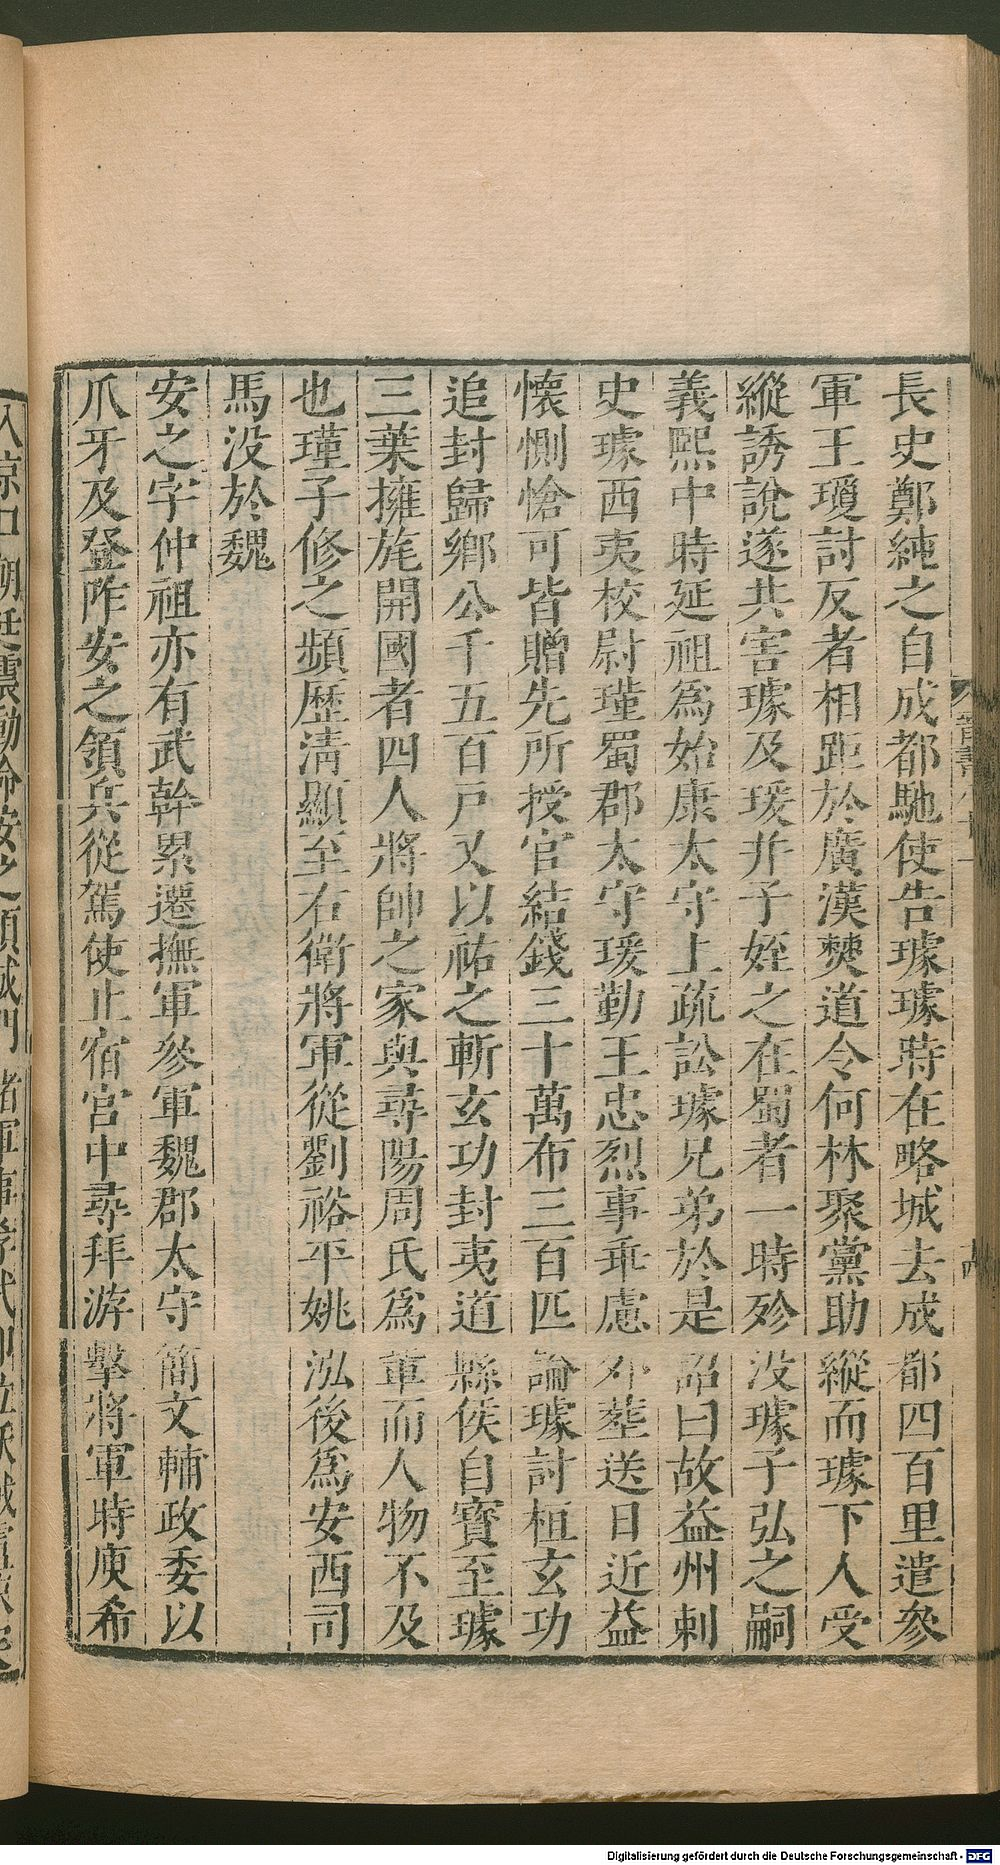 長史鄭純之自成都馳使告璩璩時在略城去成都四百里遣參
軍王瓊討反者相距於廣漢僰道令何林聚黨助縱而璩下人受
縱誘說遂共害璩及瑗并子姪之在蜀者一時殄没璩子弘之嗣
義熙中時延祖爲始康太守上疏訟璩兄弟於是詔曰故益州刺
史璩西夷校尉瑾蜀郡太守瑗勤王忠烈事乖慮外葬送日近益
懷惻愴可皆贈先所授官結錢三十萬布三百匹論璩討桓玄功
追封歸鄉公千五百戸又以祐之斬玄功封夷道縣侯自寳至璩
三葉擁旄開國者四人將帥之家與尋陽周氏爲軰而人物不及
也瑾子修之頻歷清顯至右衛將軍從劉裕平姚泓後爲安西司
馬没於魏
安之字仲祖亦有武幹累遷撫軍參軍魏郡太守簡文輔政委以
爪牙及登阼安之領兵從駕使止宿宫中尋拜游擊將軍時庾希
入京口朝廷震動命安之領城門諸軍事孝武即位妖賊盧悚突
Digitalisierung gefördert durch die Deutsche Forschungsgemeinschaft - DFG